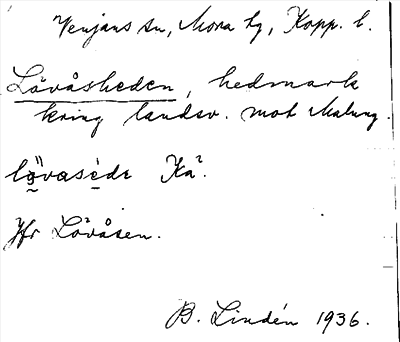 Venjans sn, Mora hg, Kopp. l.
Lövåsheden, hedmark
kring landsv. mot Malung.
Ka².
Jfr Lövåsen.
B. Lindén 1936.